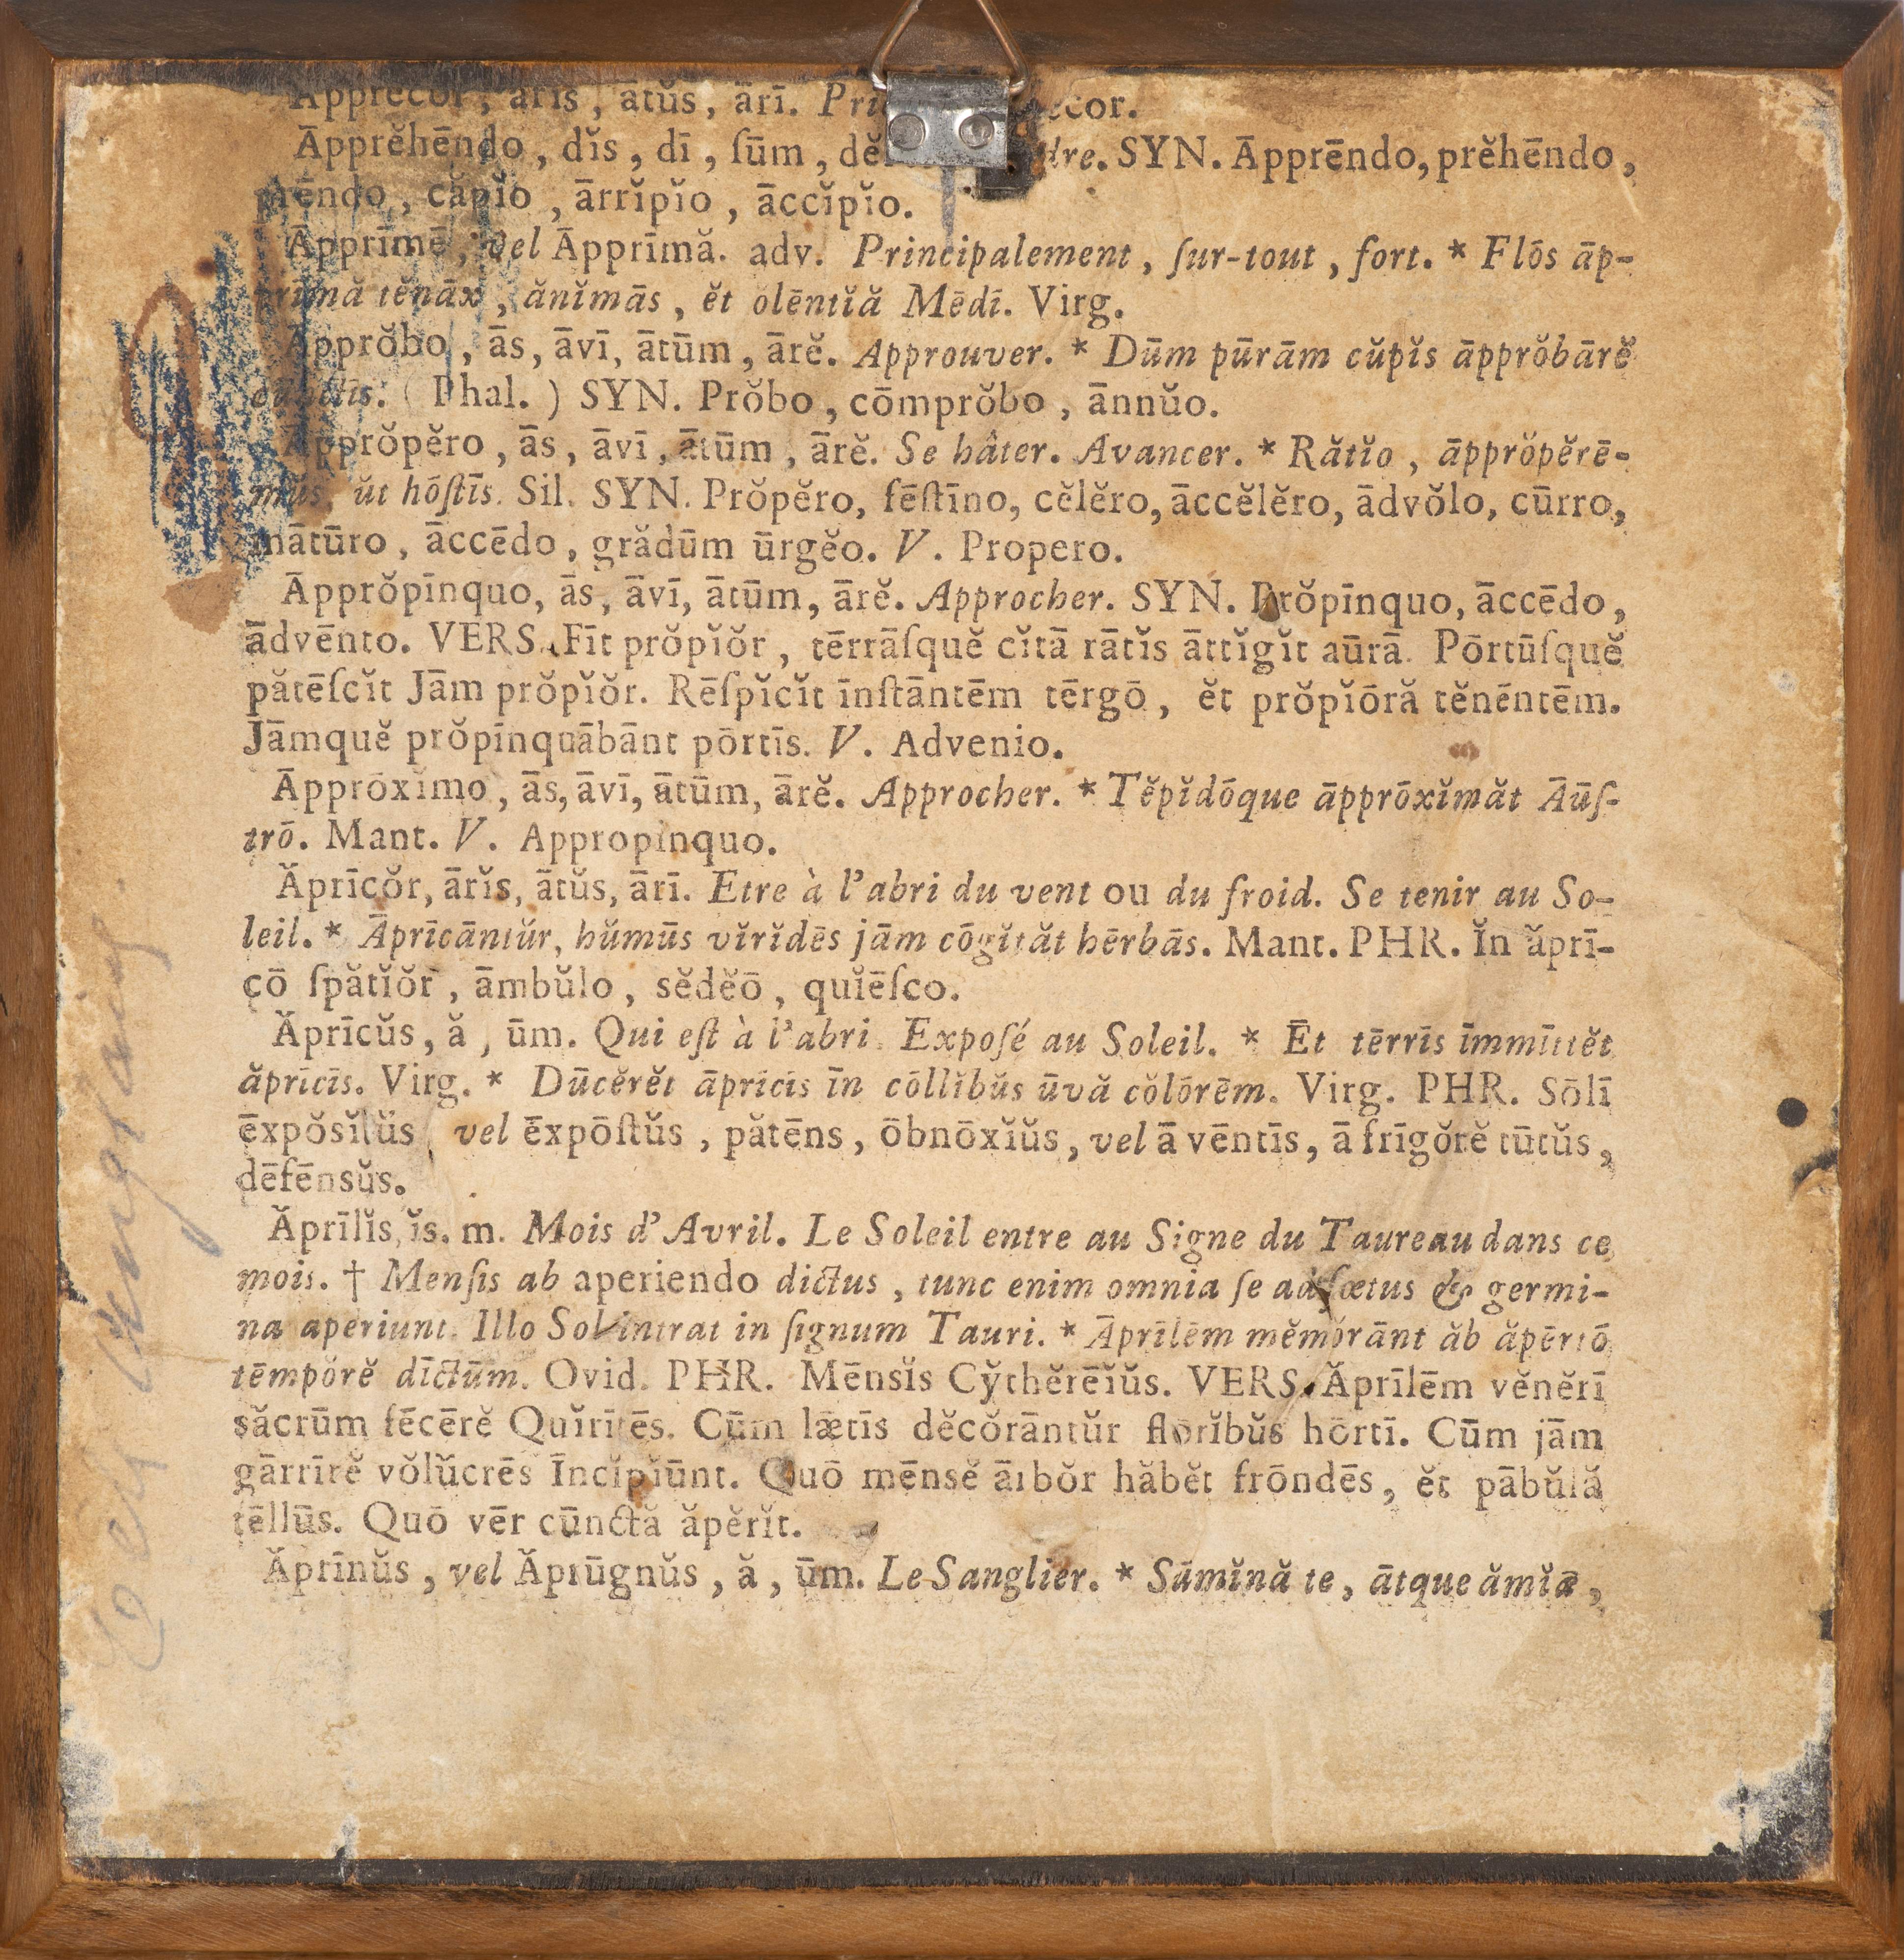 Apprĕcor, ārĭs, ātŭs, ārī. ecor.
Āpprĕhēndo, dĭs, dī, ſūm, dĕ dre. SYN. Āpprēndo, prĕhēndo,
prēndo, căpĭo, ārrĭpĭo, āccĭpĭo.
Āpprīmē, vel Āpprīmă. adv. Principalement, ſur-tout, fort. * Flōs āp-
prīmă tĕnāx, ănĭmās, ĕt ŏlēntĭă Mēdī. Virg.
Āpprŏbo, ās, āvī, ātūm, ārĕ. Approuver. * Dūm pūrām cŭpĭs āpprŏbārĕ
(Phal.) SYN. Prŏbo, cōmprŏbo, ānnŭo.
Āpprŏpĕro, ās, āvī, ātūm, ārĕ. Se hâter. Avancer. * Rătĭo, āpprŏpĕrē-
mŭs, ŭt hōſtīs. Sil. SYN. Prŏpĕro, fēſtīno, cĕlĕro, āccĕlĕro, ādvŏlo, cūrro,
mātūro, āccēdo, grădūm ūrgĕo. V. Propero.
Āpprŏpīnquo, ās, āvī, ātūm, ārĕ. Approcher. SYN. Prŏpīnquo, āccēdo,
ādvēnto. VERS. Fīt prŏpĭŏr, tērrāſquĕ cĭtā rātĭs āttĭgĭt aūrā. Pōrtūſquĕ
pătēſcĭt Jām prŏpĭŏr. Rēſpĭcĭt īnſtāntēm tērgō, ĕt prŏpĭōră tĕnēntēm.
Jāmquĕ prŏpīnquābānt pōrtīs. V. Advenio.
Āpprōxĭmo, ās, āvī, ātūm, ārĕ. Approcher. * Tĕpĭdōque āpprōxĭmăt Āūſ-
trō. Mant. V. Appropinquo.
Ăprīcŏr, ārĭs, ātŭs, ārī. Etre à l'abri du vent ou du froid. Se tenir au So-
leil. * Āprīcāntŭr, hŭmūs vĭrĭdēs jām cōgĭtăt hērbās. Mant. PHR. Ĭn ăprī-
cō ſpătĭŏr, āmbŭlo, sĕdĕō, quĭēſco.
Ăprīcŭs, ă, ūm. Qui eſt à l'abri. Expoſé au Soleil. * Ēt tērrīs īmmīttĕt
ăprīcīs. Virg. * Dūcĕrĕt āprīcīs īn cōllĭbŭs ūvă cŏlōrēm. Virg. PHR. Sōlī
ēxpŏsĭtŭs, vel ēxpōſtŭs, pătēns, ōbnōxĭŭs, vel ā vēntīs, ā frīgŏrĕ tūtŭs,
dēfēnsŭs.
Ăprīlĭs, ĭs. m. Mois d'Avril. Le Soleil entre au Signe du Taureau dans ce
mois. † Menſis ab aperiendo dictus, tunc enim omnia ſe ad fœtus & germi-
na aperiunt. Illo Sol intrat in ſignum Tauri. * Āprīlēm mĕmŏrānt ăb ăpērtō
tēmpŏrĕ dīctūm. Ovid. PHR. Mēnsĭs Cy̆thĕrēĭŭs. VERS. Ăprīlēm vĕnĕrī
săcrūm fēcērĕ Quĭrītēs. Cūm lætīs dĕcŏrāntŭr flōrĭbŭs hōrtī. Cūm jām
gārrīrĕ vŏlŭcrēs Īncĭpĭūnt. Quō mēnsĕ ārbŏr hăbĕt frōndēs, ĕt pābŭlă
tēllūs. Quō vēr cūnctă ăpĕrĭt.
Ăprīnŭs, vel Ăprūgnŭs, ă, ūm. Le Sanglier. * Sūmĭnă te, ātque ămĭæ,